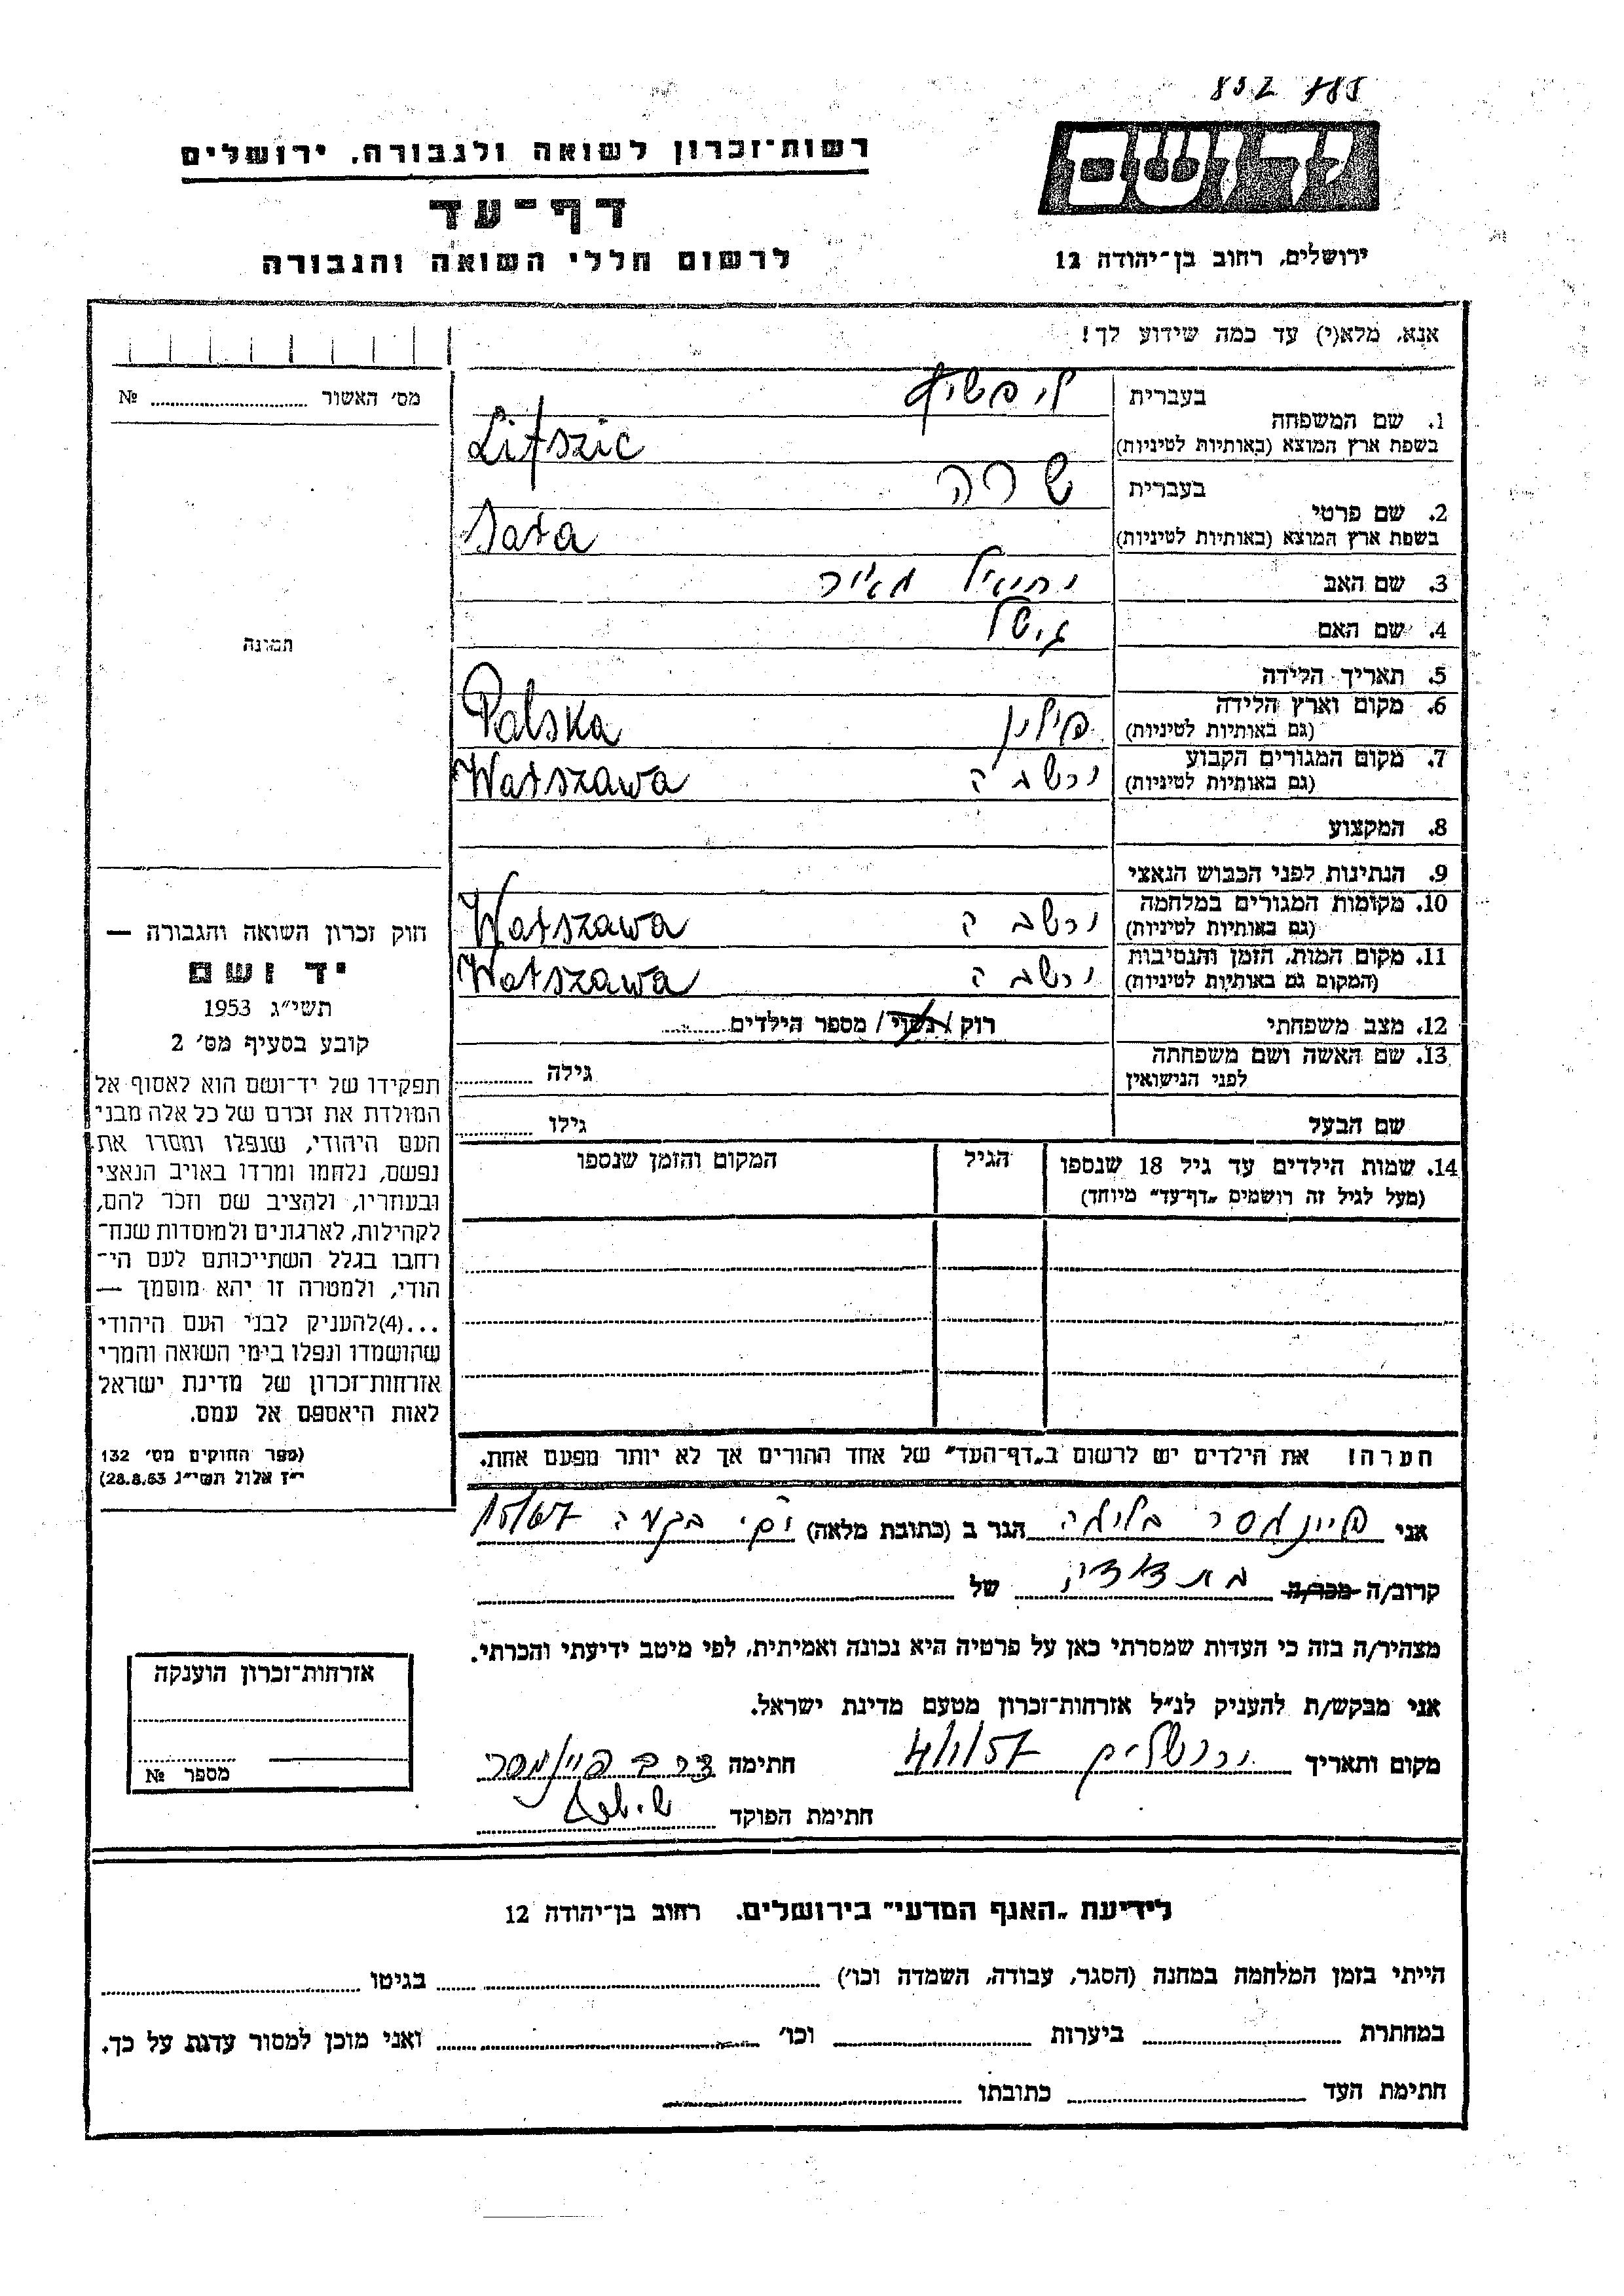 רשות־זכרון לשואה ולגבורה. ירושלים
דף־עד
לרשום חללי השואה והגבורה
יד ושם
ירושלים, רחוב בן־יהודה 12
אנא, מלא(י) עד כמה שידוע לך!
מס׳ האשור № ..........
תמונה
1. שם המשפחה בעברית ליפשיץ
בשפת ארץ המוצא (באותיות לטיניות) Lifszic
2. שם פרטי בעברית שרה
בשפת ארץ המוצא (באותיות לטיניות) Sara
3. שם האב יחיאל מאיר
4. שם האם גיטל
5. תאריך הלידה
6. מקום וארץ הלידה פולין Polska
(גם באותיות לטיניות)
7. מקום המגורים הקבוע ורשבה Warszawa
(גם באותיות לטיניות)
8. המקצוע
9. הנתינות לפני הכבוש הנאצי
10. מקומות המגורים במלחמה ורשבה Warszawa
(גם באותיות לטיניות)
11. מקום המות, הזמן והנסיבות ורשבה Warszawa
(המקום גם באותיות לטיניות)
12. מצב משפחתי רוק / נשוי / מספר הילדים ..........
13. שם האשה ושם משפחתה גילה ..........
לפני הנישואין
שם הבעל גילו ..........
14. שמות הילדים עד גיל 18 שנספו הגיל המקום והזמן שנספו
(מעל לגיל זה רושמים „דף־עד״ מיוחד)
חוק זכרון השואה והגבורה —
יד ושם
תשי״ג 1953
קובע בסעיף מס׳ 2
תפקידו של יד־ושם הוא לאסוף אל
המולדת את זכרם של כל אלה מבני
העם היהודי, שנפלו ומסרו את
נפשם, נלחמו ומרדו באויב הנאצי
ובעוזריו, ולהציב שם וזכר להם,
לקהילות, לארגונים ולמוסדות שנח־
רחבו בגלל השתייכותם לעם הי־
הודי, ולמטרה זו יהא מוסמך —
...(4)להעניק לבני העם היהודי
שהושמדו ונפלו בימי השואה והמרי
אזרחות־זכרון של מדינת ישראל
לאות היאספם אל עמם.
(ספר החוקים מס׳ 132
י״ז אלול תשי״ג 28.8.53)
הערה! את הילדים יש לרשום ב„דף־העד״ של אחד ההורים אך לא יותר מפעם אחת.
אני פיינמסר בלומה הגר ב (כתובת מלאה) 15/67
קרוב/ה מכר/ה בת דודה של ..........
מצהיר/ה בזה כי העדות שמסרתי כאן על פרטיה היא נכונה ואמיתית, לפי מיטב ידיעתי והכרתי.
אני מבקש/ת להעניק לנ״ל אזרחות־זכרון מטעם מדינת ישראל.
מקום ותאריך ירושלים 4/1/57 חתימה פיינמסר
חתימת הפוקד
אזרחות־זכרון הוענקה
מספר №
לידיעת „האגף המדעי״ בירושלים. רחוב בן־יהודה 12
הייתי בזמן המלחמה במחנה (הסגר, עבודה, השמדה וכו׳) .......... בגיטו ..........
במחתרת .......... ביערות .......... וכו׳ .......... ואני מוכן למסור עדות על כך.
חתימת העד .......... כתובתו ..........